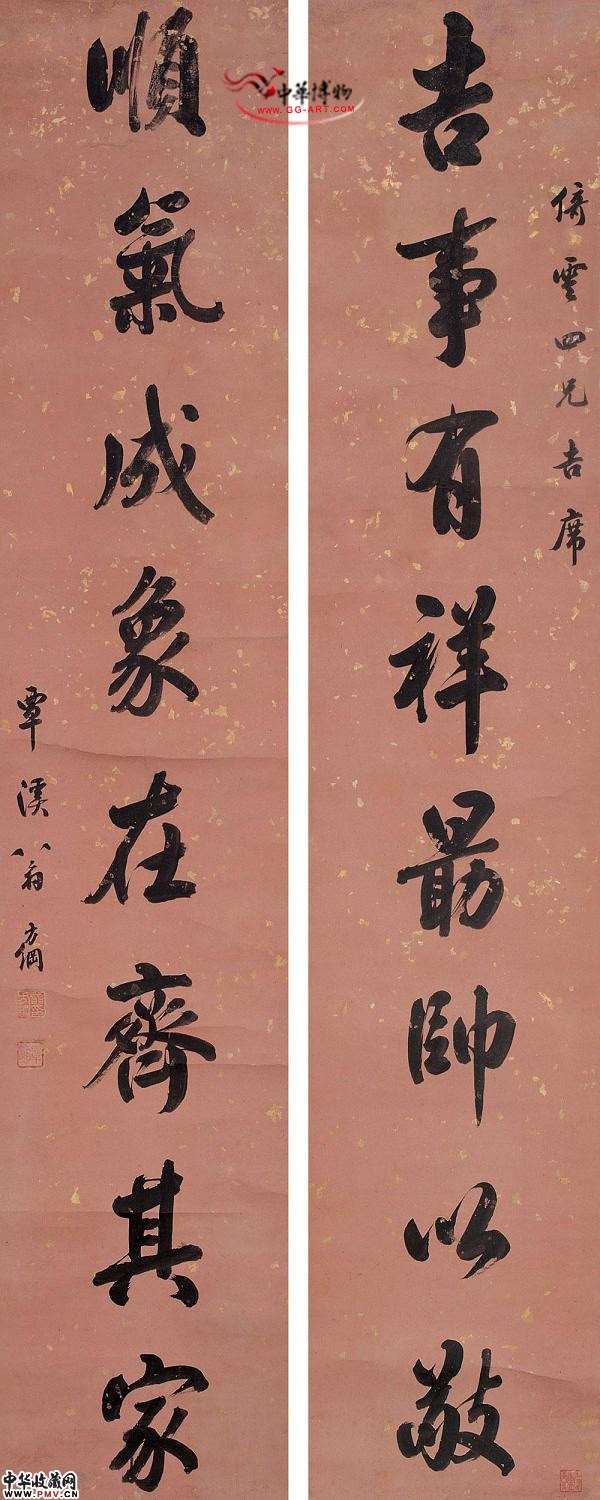 倚雲四兄吉席
吉事有祥勗帥以敬
順氣成象在齊其家
覃溪翁方綱
中華博物
WWW.GG-ART.COM
中华收藏网
WWW.PMV.CN